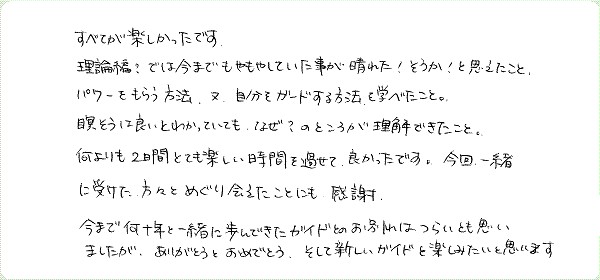 すべてが楽しかったです。
理論編?では今までもやもやしていた事が晴れた!そうか!と思えたこと、
パワーをもらう方法、又、自分をガードする方法を学べたこと。
瞑そうは良いとわかっていても、なぜ?のところが理解できたこと。
何よりも2日間とても楽しい時間を過せて、良かったです。今回、一緒
に受けた方々とめぐり会えたことにも感謝。
今まで何十年と一緒に歩んできたガイドとのお別れはつらいとも思い
ましたが、ありがとうとおめでとう、そして新しいガイドを楽しみたいと思います